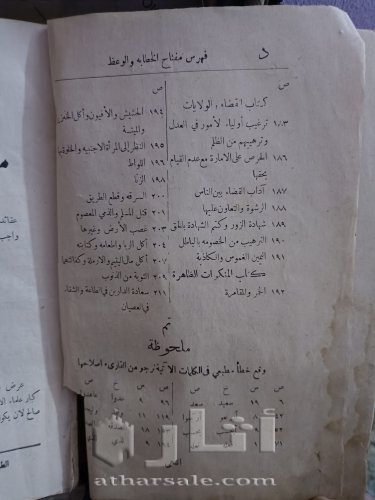 د
فهرس مفتاح الخطابه والوعظ
ص
كتاب القضاء والولايات
١٨٣ ترغيب أولياء الأمور في العدل
وترهيبهم من الظلم
١٨٦ الحرص على الامارة مع عدم القيام
بحقها
١٨٧ آداب القضاء بين الناس
١٨٨ الرشوة والتعاون عليها
١٨٩ شهادة الزور وكتم الشهادة بالحق
١٩٠ الترهيب من الخصومه بالباطل
١٩١ اليمين الغموس والكاذبة
كتاب المنكرات الظاهرة
١٩٢ الخمر والمقامرة
ص
١٩٤ الحشيش والأفيون وأكل الخنزير
والميتة
١٩٥ النظر إلى المرأة الاجنبيه والخلوة بها
١٩٦ اللواط
١٩٨ الزنا
٢٠٠ السرقه وقطع الطريق
٢٠١ قتل المسلم والذمي المعصوم
٢٠٣ غصب الأرض وغيرها
٢٠٤ أكل الربا واطعامه وكتابته
٢٠٧ أكل مال اليتيم والارملة وكفالتهما
التوبة من الذنوب
٢١١ سعادة الدارين في الطاعة والشقاء
في العصيان
تم
ملحوظة
وقع خطأ مطبعي في الكلمات الآتية نرجو من القارىء اصلاحها
أثار
atharsale.com